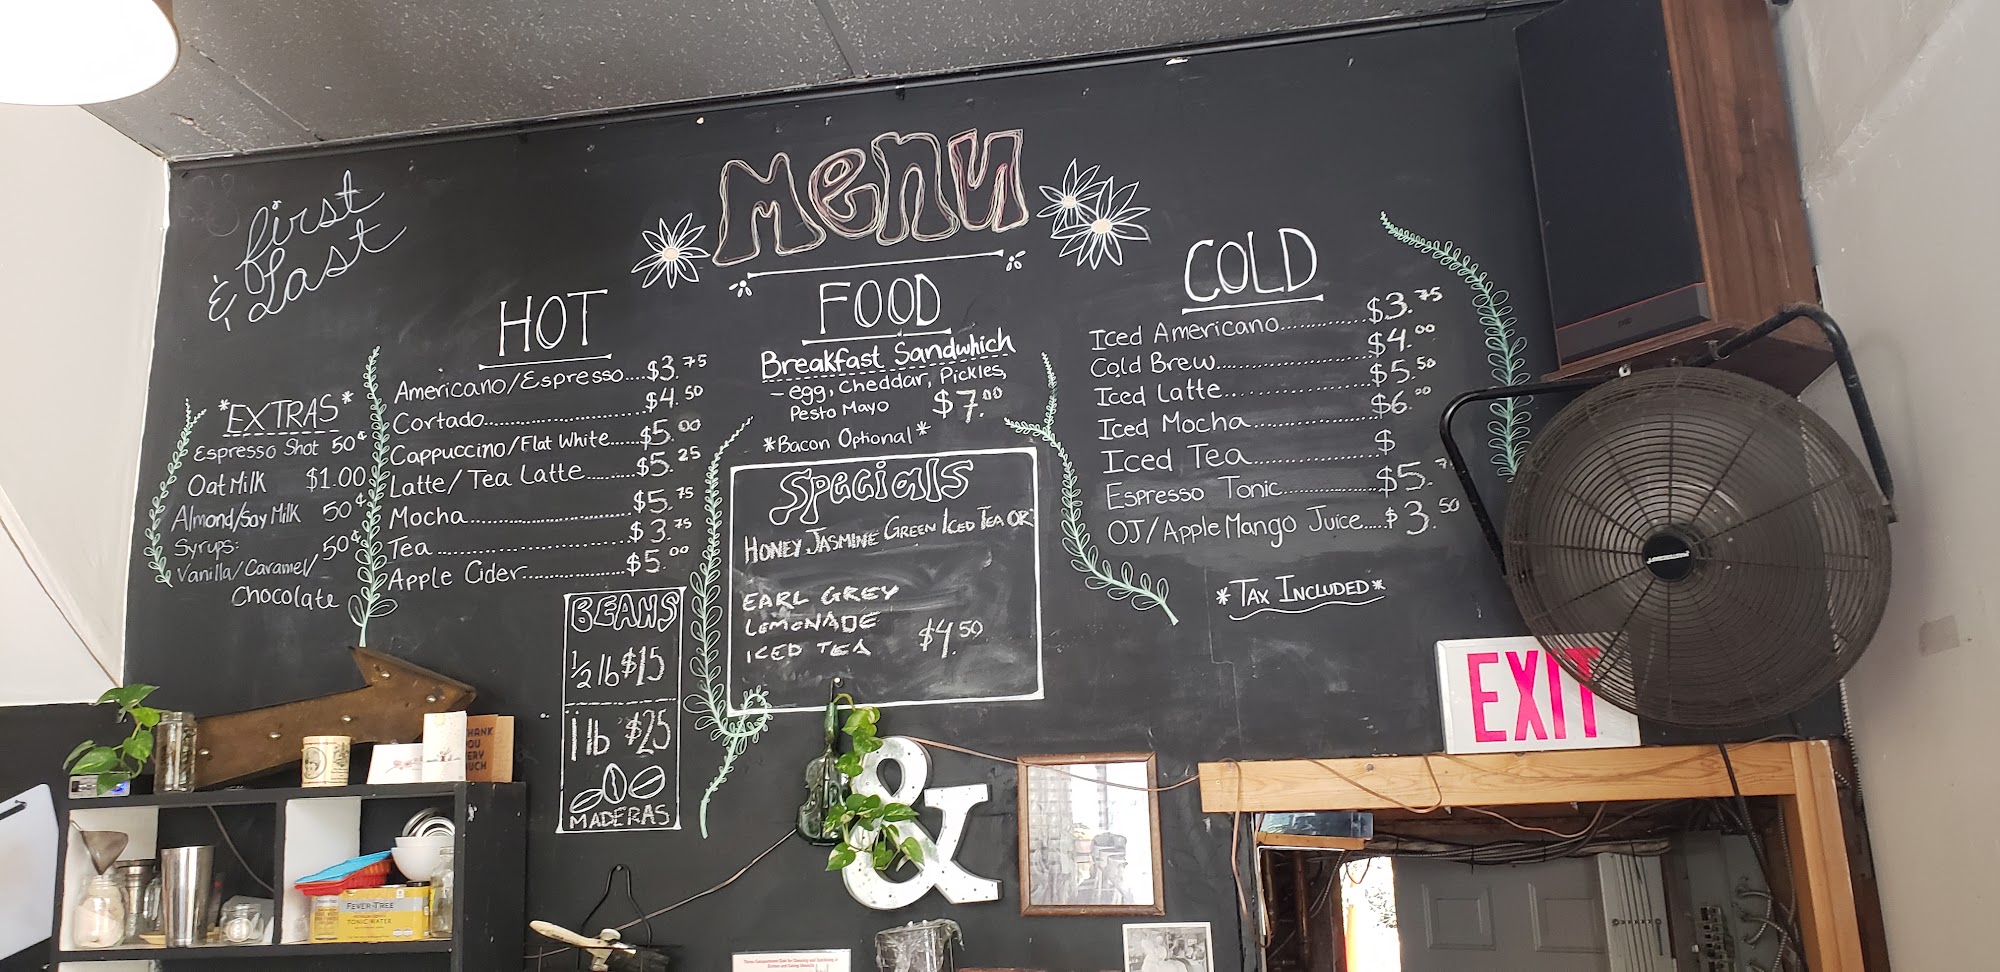 first
& Last
Menu
*EXTRAS*
Espresso Shot 50¢
Oat Milk $1.00
Almond/Soy Milk 50¢
Syrups:
Vanilla/Caramel/ 50¢
Chocolate
HOT
Americano/Espresso....$3.75
Cortado..................$4.50
Cappuccino/Flat White......$5.00
Latte/Tea Latte.........$5.25
Mocha.....................$5.75
Tea........................$3.75
Apple Cider..............$5.00
BEANS
1/2 lb $15
1 lb $25
MADERAS
FOOD
Breakfast Sandwhich
- egg, Cheddar, Pickles,
Pesto Mayo $7.00
*Bacon Optional*
Specials
HONEY JASMINE GREEN ICED TEA OR
EARL GREY
LEMONADE
ICED TEA $4.50
COLD
Iced Americano............$3.75
Cold Brew....................$4.00
Iced Latte...................$5.50
Iced Mocha................$6.00
Iced Tea...................$
Espresso Tonic.............$5.7
OJ/Apple Mango Juice.....$3.50
*TAX INCLUDED*
EXIT
THANK
YOU
VERY
MUCH
FEVER-TREE
TONIC WATER
&